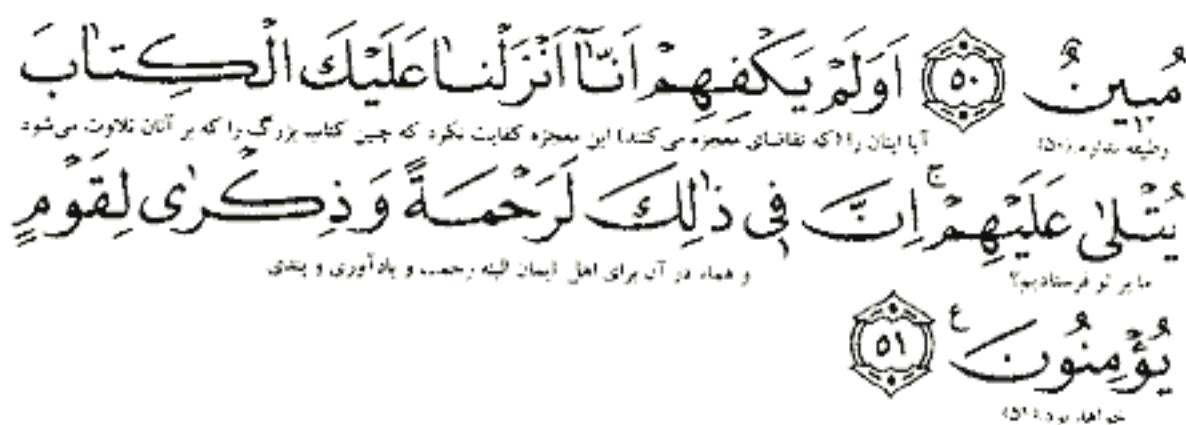 مُبِينٌ ۵۰ اَوَلَمْ يَكْفِهِمْ اَنَّآ اَنْزَلْنٰا عَلَيْكَ الْكِتٰابَ
وظیفه ندارم (۵۰) آیا اینان را (که تقاضای معجزه می‌کنند) این معجزه کفایت نکرد که چنین کتاب بزرگ را که بر آنان تلاوت می‌شود
يُتْلىٰ عَلَيْهِمْ ۚ اِنَّ فِي ذٰلِكَ لَرَحْمَةً وَ ذِكْرٰى لِقَوْمٍ
ما بر تو فرستادیم؟ و همانا در آن برای اهل ایمان البته رحمت و یادآوری و پندی
يُؤْمِنُونَ ع ۵۱
خواهد بود (۵۱)